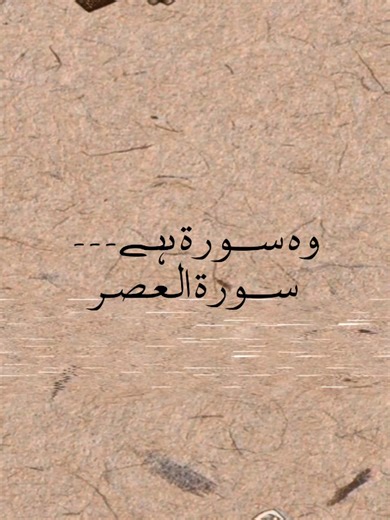 وہ سورۃ ہے---
سورۃ العصر